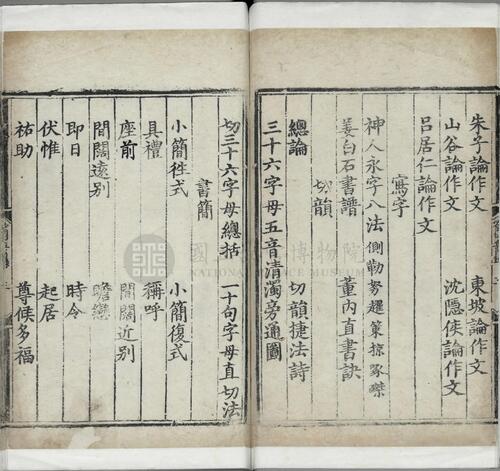 朱子論作文　東坡論作文
山谷論作文　沈隱侯論作文
呂居仁論作文
寫字
神人永字八法側勒努趯策掠啄磔
姜白石書譜　董內直書訣
切韻
總論　切韻捷法詩
三十六字母五音清濁旁通圖
切三十六字母總括　一十句字母直切法
書簡
小簡徃式　小簡復式
具禮　稱呼
座前　間闊近別
間闊遠別　瞻戀
即日　時令
伏惟　起居
祐助　尊候多福
國　博物院
NATIONAL PALACE MUSEUM